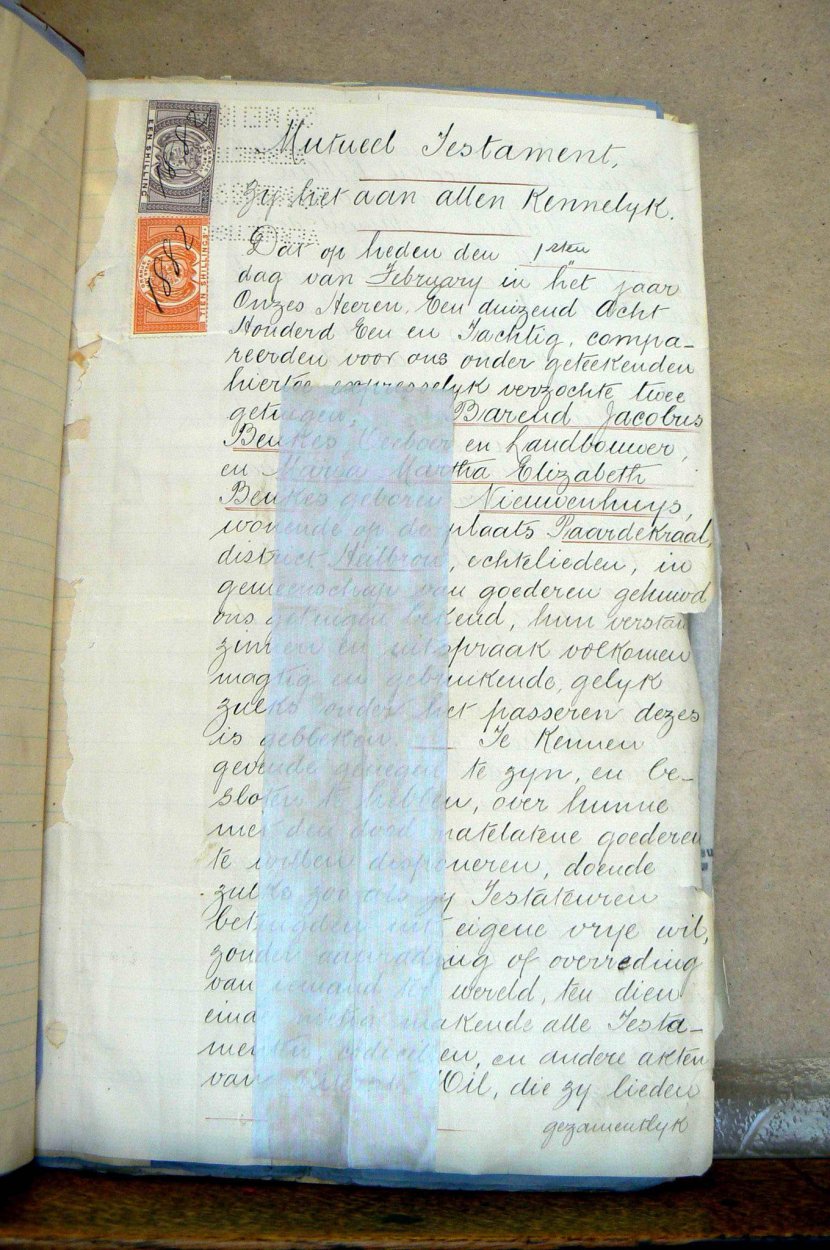 EEN SHILLING
1882
TIEN SHILLINGS
1882
Mutueel Testament,
Zy het aan allen Kennelyk.
Dat op heden den 1sten
dag van February in het jaar
Onzes Heeren, Een duizend Acht
Honderd Een en Tachtig, compa-
reerden voor ons onder geteekenden
hiertoe expresselyk verzochte twee
getuigen, Barend Jacobus
Beukes Veeboer en Landbouwer,
en Maria Martha Elizabeth
Beukes geboren Nieuwenhuys,
wonende op de plaats Paardekraal,
district Heilbron, echtelieden, in
gemeenschap van goederen gehuwd
ons getuigen bekend, hun verstan
zinnen en uitspraak volkomen
magtig en gebruikende, gelyk
zulks onder het passeren dezes
is gebleken. Te Kennen
gevende genegen te zyn, en be-
sloten te hebben, over hunne
met den dood natelatene goederen
te willen disponeren, doende
zulks zoo als zy Testateuren
betuigden uit eigene vrye wil,
zonder aanrading of overreding
van iemand ter wereld, ten dien
einde nietig makende alle Testa-
menten, codicillen, en andere akten
van Wil, die zy lieden
gezamentlyk